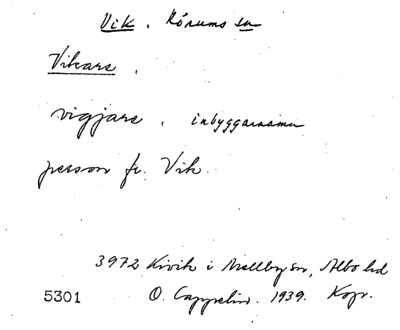 Vik. Rörums sn
Vikare.
vigjare. inbyggarnamn
person fr. Vik.
3972 Kivik i Mellby sn, Albo hd
5301 O. Cappelin. 1939. Kop.